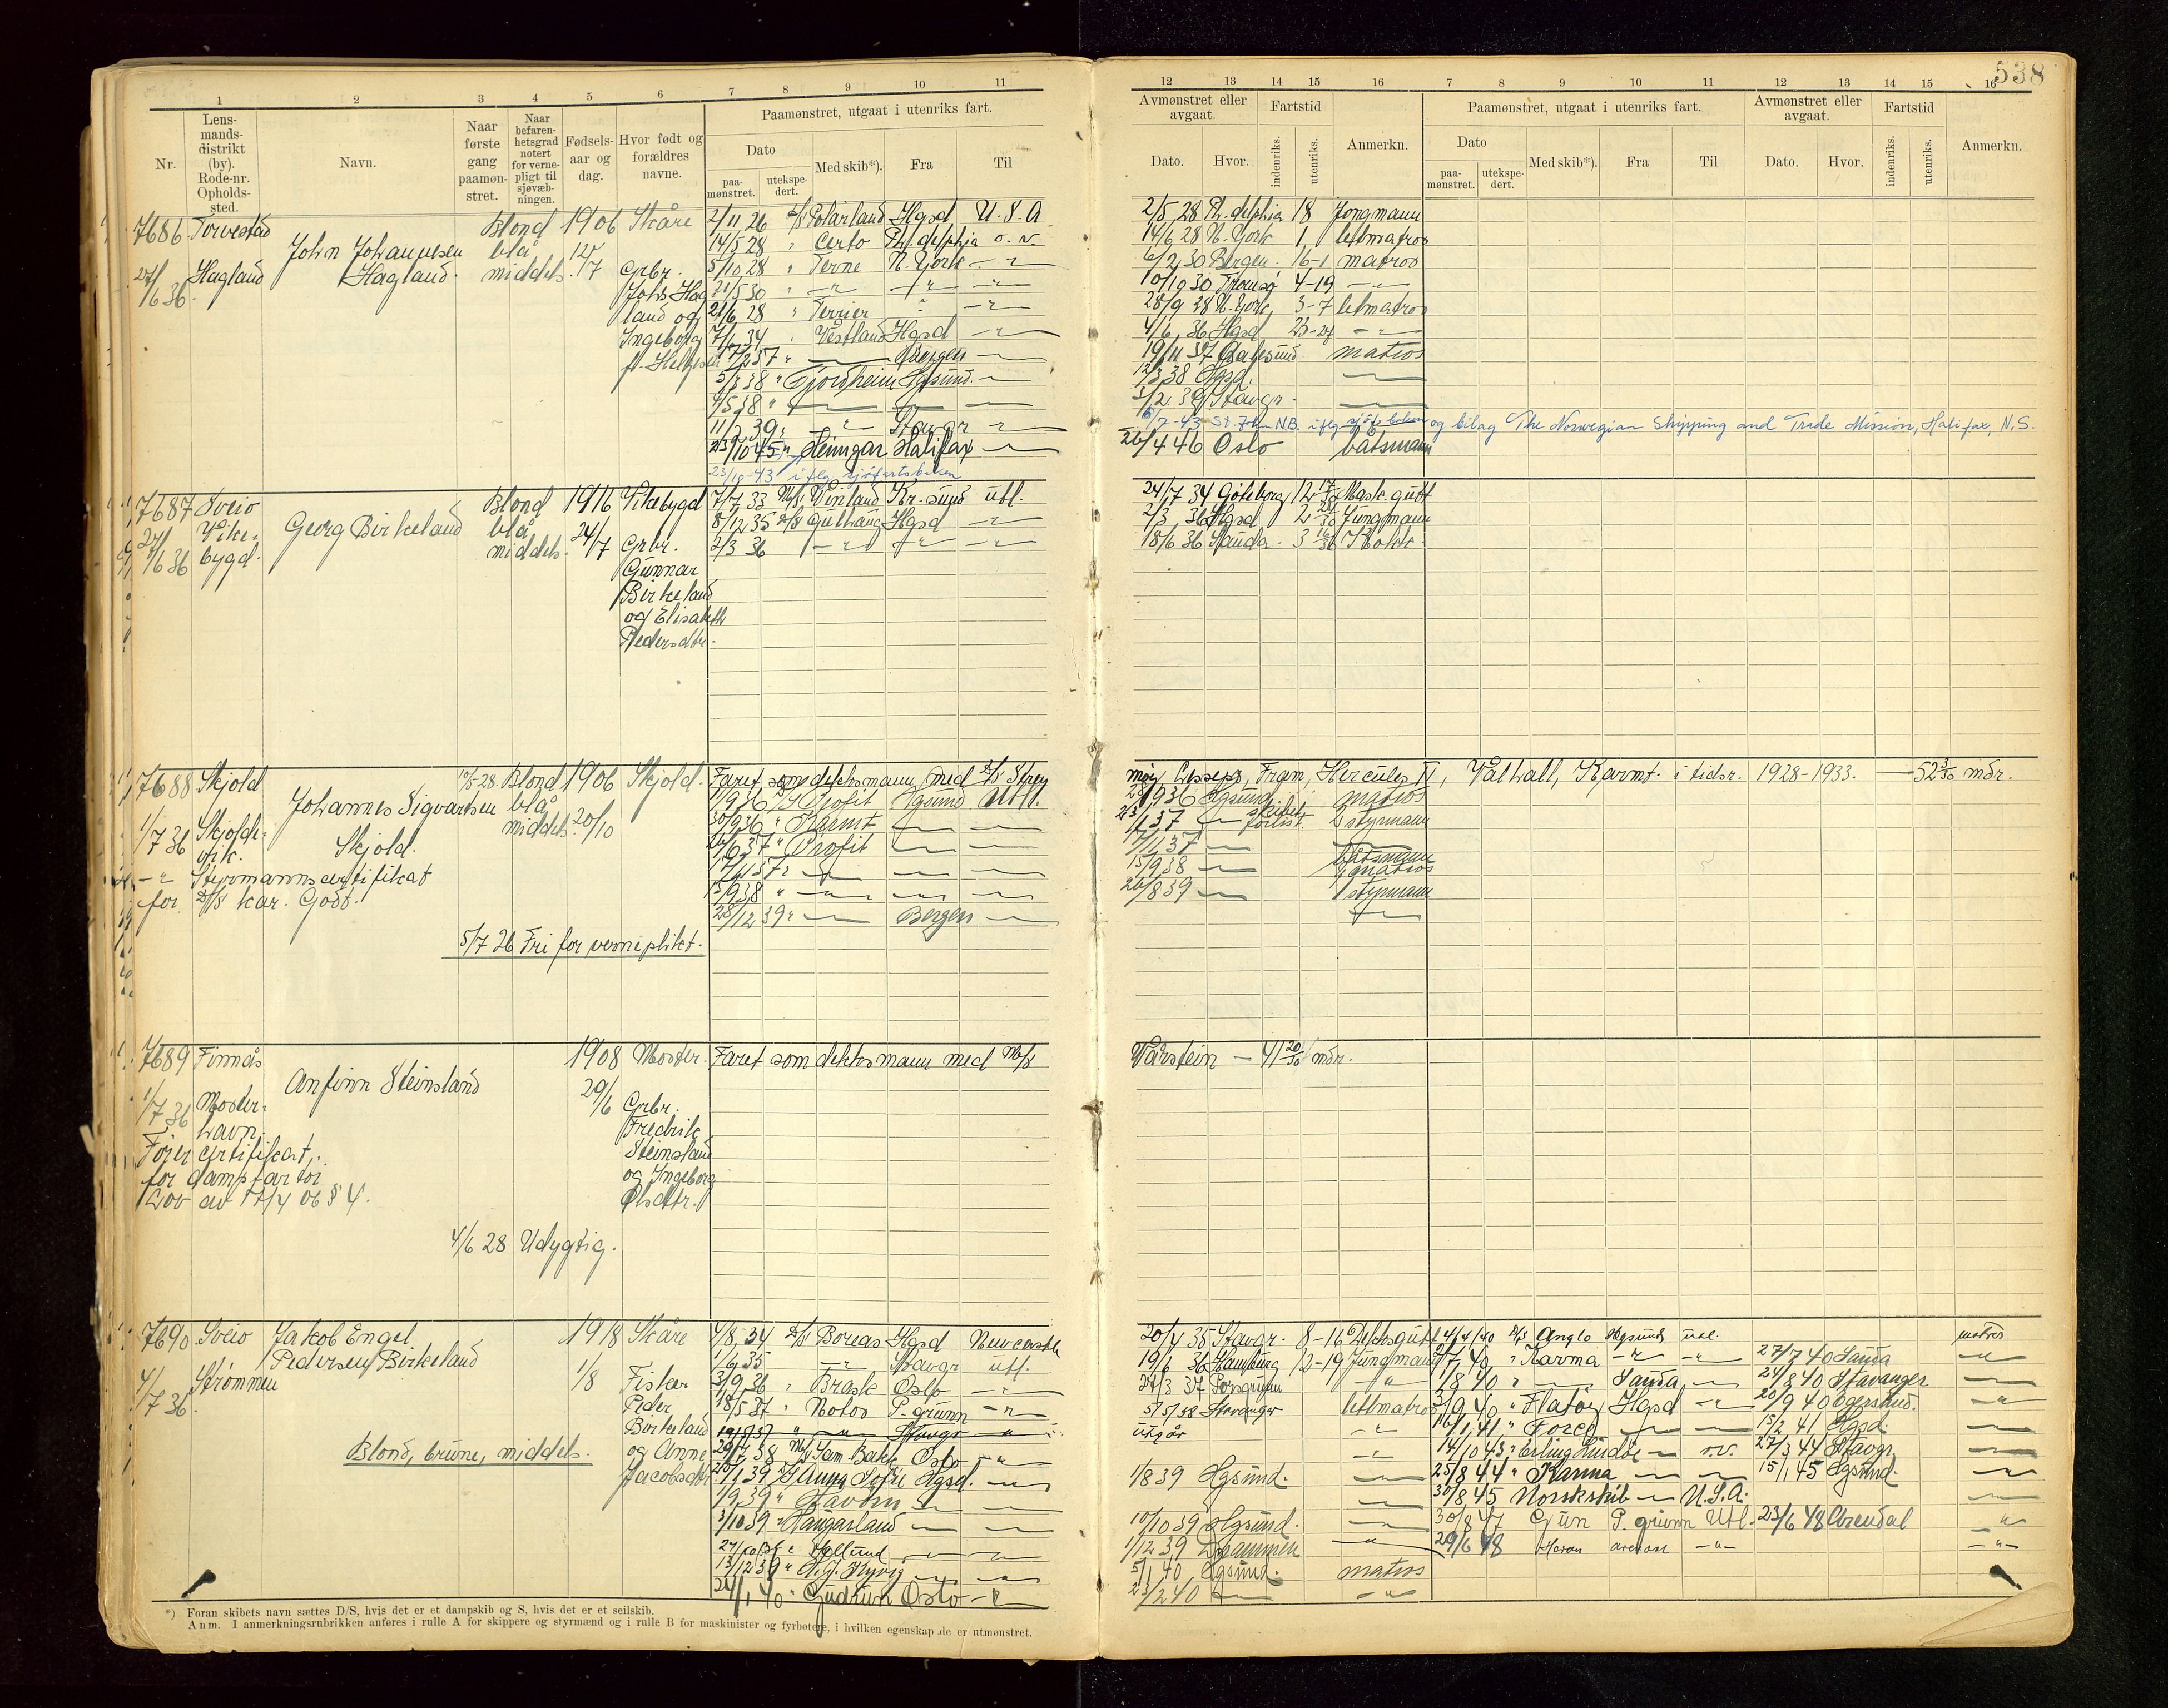 538
1 2 3 4 5 6 7 8 9 10 11
Nr.
Lens-
mands-
distrikt
(by).
Rode-nr.
Opholds-
sted.
Navn.
Naar
første
gang
paamøn-
stret.
Naar
befaren-
hetsgrad
notert
for verne-
pligt til
sjøvæb-
ningen.
Fødsels-
aar og
dag.
Hvor født og
forældres
navne.
Paamønstret, utgaat i utenriks fart.
Dato
paa-
mønstret.
utekspe-
dert.
Med skib*).
Fra
Til
12 13 14 15 16 7 8 9 10 11 12 13 14 15 16
Avmønstret eller
avgaat.
Dato.
Hvor.
Fartstid
indenriks.
utenriks.
Anmerkn.
Paamønstret, utgaat i utenriks fart.
Dato
paa-
mønstret.
utekspe-
dert.
Med skib*).
Fra
Til
Avmønstret eller
avgaat.
Dato.
Hvor.
Fartstid
indenriks.
utenriks.
Anmerkn.
7686 Torvestad
Hagland
John Johannesen
Hagland.
Blond
blå
middels.
1906
12/7
Skåre
Grbr.
Johs Hag
land og
Ingeborg
2/11 26 D/S Polarland Hgsd U.S.A
14/5 28 " Certo Ph.delphia o. v.
5/10 28 " Terne N. York - " -
21/5 30 " - " - - " - - " -
21/6 28 " Terrier " - " -
Vestland Hgsd - " -
Bergen
5/3 38 " Fjordheim Hgsund.
11/2 39 " Stavgr
23/10 45 " Heimgar Halifax
23/10-43 iflg. sjøfartsboken
2/5 28 Ph.delphia 18 Jongmann
14/6 28 N. York 1 lettmatros
6/2 30 Bergen. 16-1 matros
10/10 30 Tromsø 4-19
28/9 28 N. York, 3-7 letmatros
4/6 36 Hgsd 23-27
19/11 37 Aalesund matros
12/3 38 Hgsd.
Stavgr.
St. John NB. iflg. og bilag The Norwegian Shipping and Trade Mission, Halifax, N.S.
26/4 46 Oslo båtsmann
7687 Sveio
Vike-
bygd.
27/6 36
Georg Birkeland
Blond
blå
middels.
1916
24/7
Vikebygd
Grbr.
Gunnar
Birkeland
og Elisabeth
Pedersdtr.
7/7 33 M/S Vinland Kr. sund utl.
8/12 35 D/S Gulhaug Hgsd - " -
2/3 36 - " - - " - - " -
24/7 34 Göteborg 12 17/30 Mask. gutt
2/3 36 Hgsd 2 Jungmann
18/6 36 Sauda. 3 Kokk
7688 Skjold
1/7 36 Skjolde-
vik.
Johannes Sigvartsen
Skjold.
- " - Styrmannscertifikat
for D/S kar. Godt.
Blond
blå
middels.
1906
20/10
Skjold.
5/7 26 Fri for verneplikt.
Faret som dekksmann med D/S Streg
1/9 36 D/S Profit Hgsund Utl.
30/9 36 " Karmt
" Profit
15/9 38 "
28/12 39 " Bergen
Fram, Hercules IV, Valhall, Karmt. i tidsr. 1928-1933. - 52 mdr.
28/9 36 Hgsund matros
skibet
forlist. 2 styrmann
15/9 38 båtsmann
matros
26/8 39 styrmann
7689 Finnås
1/7 36 Moster-
havn.
Anfinn Steinsland
Fører certifikat,
for dampfartøi
Lov av 17/4 06 § 4.
4/6 28 Udygtig.
1908
29/6
Moster.
Grbr.
Fredrik
Steinsland
og Ingeborg
Olsdtr.
Faret som dekksmann med M/S
Vårstein - 41 20/30 mdr.
7690 Sveio
Strømmen
4/7 36.
Jakob Engel
Pedersen Birkeland
Blond, brune, middels.
1918
1/8
Skåre
Fisker
Peder
Birkeland
og Anne
Jacobsdtr
4/8 34 D/S Boreas Hgsd Newcastle
1/6 35 - " - Stavgr utl.
3/9 36 " Brask Oslo - " -
18/5 37 " Notos P. grunn - " -
29/7 38 M/S Sam Bakke Oslo - " -
20/1 39 D/S Anna Sofie Hgsd.
1/9 39 " Havørn
3/10 39 " Haugarland
13/12 39 "
24/1 40 " Gudrun Oslo
20/4 35 Stavgr. 8-16 Dekksgutt
19/6 36 Hamburg 12-19 Jungmann
27/3 37 Porsgrunn - " -
5/5 38 Stavanger lettmatros
utgår - " -
1/8 39 Hgsund.
10/10 39 Hgsund.
1/12 39 Drammen
5/1 40 Hgsund. matros
23/2 40 - " -
4/4/40 D/S Anglo Hgsund utl. matros
7/7 40 " Karma - " - - " - 27/7 40 Sauda
1/8 40 " Sauda 24/8 40 Stavanger
3/9 40 " Flatøy Hgsd - " - 20/9 40 Egersund.
16/1 41 " Force 15/2 41 Hgsd.
14/10 43 " Erling Lindøe n.v. 27/3 44 Stavgr.
25/8 44 " Karma 15/1 45 Hgsund.
30/8 45 Norsk skib U.S.A.
30/8 47 Gun P. grunn Utl. 23/6 48 Arendal
29/6 48 Arendal - " -
*) Foran skibets navn sættes D/S, hvis det er et dampskib og S, hvis det er et seilskib.
Anm. I anmerkningsrubrikken anføres i rulle A for skippere og styrmænd og i rulle B for maskinister og fyrbøtere, i hvilken egenskap de er utmønstret.